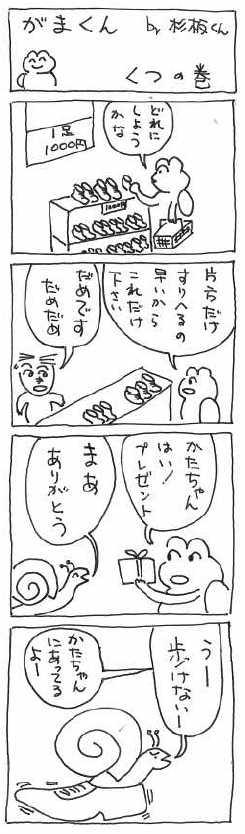 がまくん
by 杉板くん
くつの巻
1足
1000円
どれに
しよう
かな
1000円
片方だけ
すりへるの
早いから
これだけ
下さい
だめです
だめだめ
かたちゃん
はい!
プレゼント
まあ
ありがとう
うー
歩けないー
かたちゃん
にあってる
よー